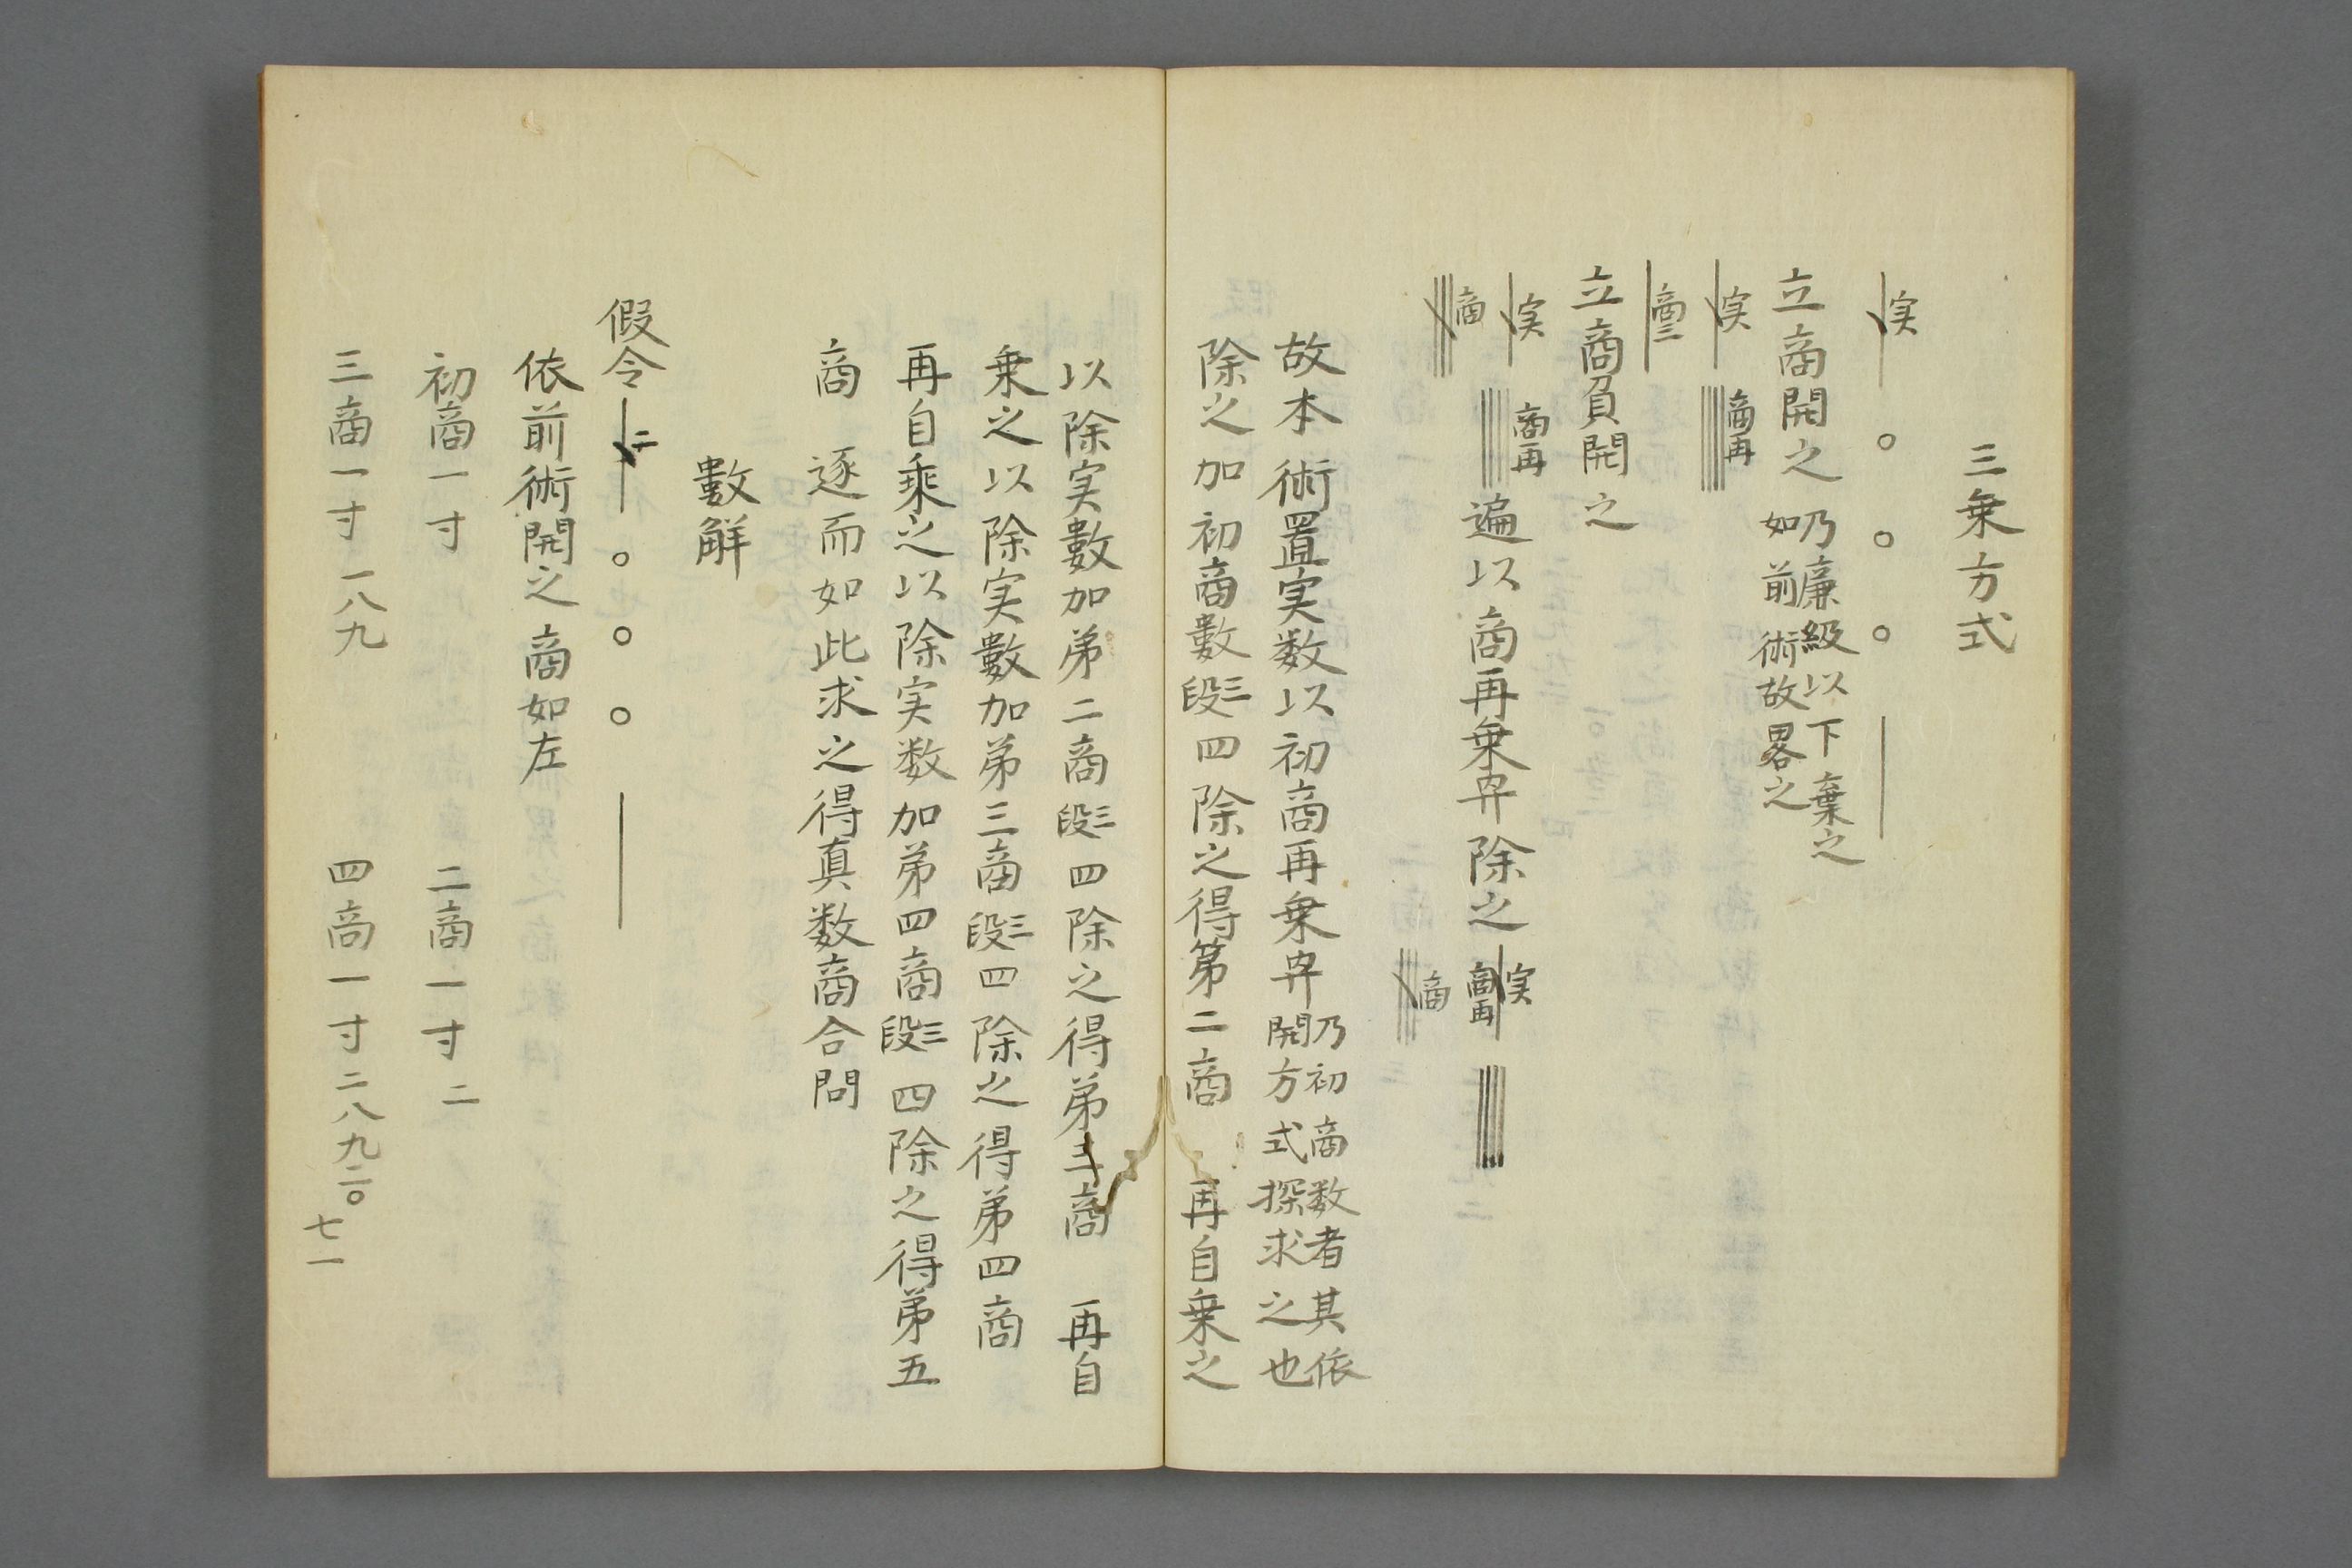 三乗方式
実 〇 〇 〇
立商開之 乃廉級以下棄之
如前術故畧之
実 商再
商三
立商負開之
実 商再 遍以商再乗冪除之 実 商再
商 商
故本術置実数以初商再乗冪 乃初商数者其依
開方式探求之也
除之加初商數三段四除之得第二商 再自乗之
以除実數加弟二商三段四除之得弟三商 再自
乗之以除実數加弟三商三段四除之得弟四商
再自乘之以除実数加弟四商三段四除之得弟五
商 逐而如此求之得真数商合問
數解
假令 二 〇 〇 〇
依前術開之商如左
初商一寸 二商一寸二
三商一寸一八九 四商一寸二八九二〇
七一